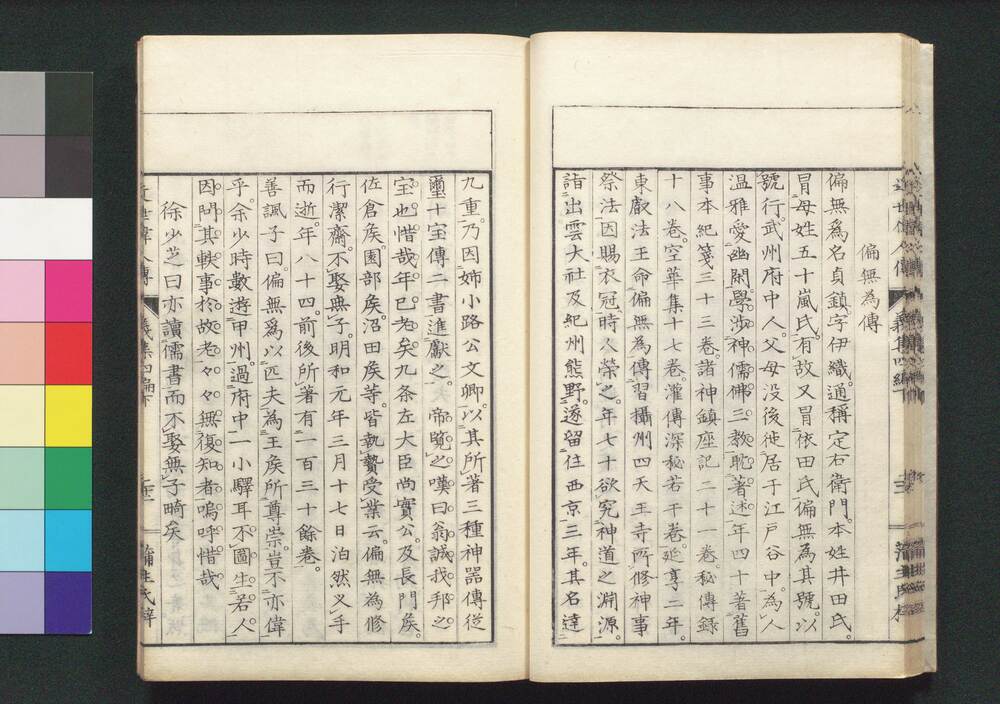 偏無為傳
偏無爲名貞鎮。字伊織。通稱定右衛門。本姓井田氏。
冐母姓五十嵐氏。有故又冐依田氏。偏無為其號。以
號行。武州府中人。父母没後徙居于江戸谷中。為人
温雅。愛幽閑。學渉神儒佛三教。耽著述。年四十著舊
事本紀箋三十三卷。諸神鎮座記二十卷。秘傳録
十八卷。空華集十七卷。灌傳深秘若干卷。延享二年。
東叡法王命偏無為傳習攝州四天王寺所修神事
祭法。因賜衣冠。時人榮之。年七十欲究神道之淵源。
詣出雲大社及紀州熊野。遂留住西京三年。其名達
九重。乃因姉小路公文卿。以其所著三種神器傳從
璽十宝傳二書進獻之。天帝覽之。嘆曰。翁誠我邦之
宝也。惜哉。年已老矣。九条左大臣尚實公。及長門矦。
佐倉矦。園部矦。沼田矦等。皆執贄受業云。偏無為修
行潔齋。不娶無子。明和元年三月十七日泊然义手
而逝。年八十四。前後所著有一百三十餘卷。
善諷子曰。偏無爲以匹夫為王矦所尊崇。豈不亦偉
乎。余少時數遊甲州。過府中一小驛耳。不圖生若人。
因問其軼事於故老。々々無復知者。嗚呼惜哉。
徐少芝曰。亦讀儒書而不娶無子。畸矣